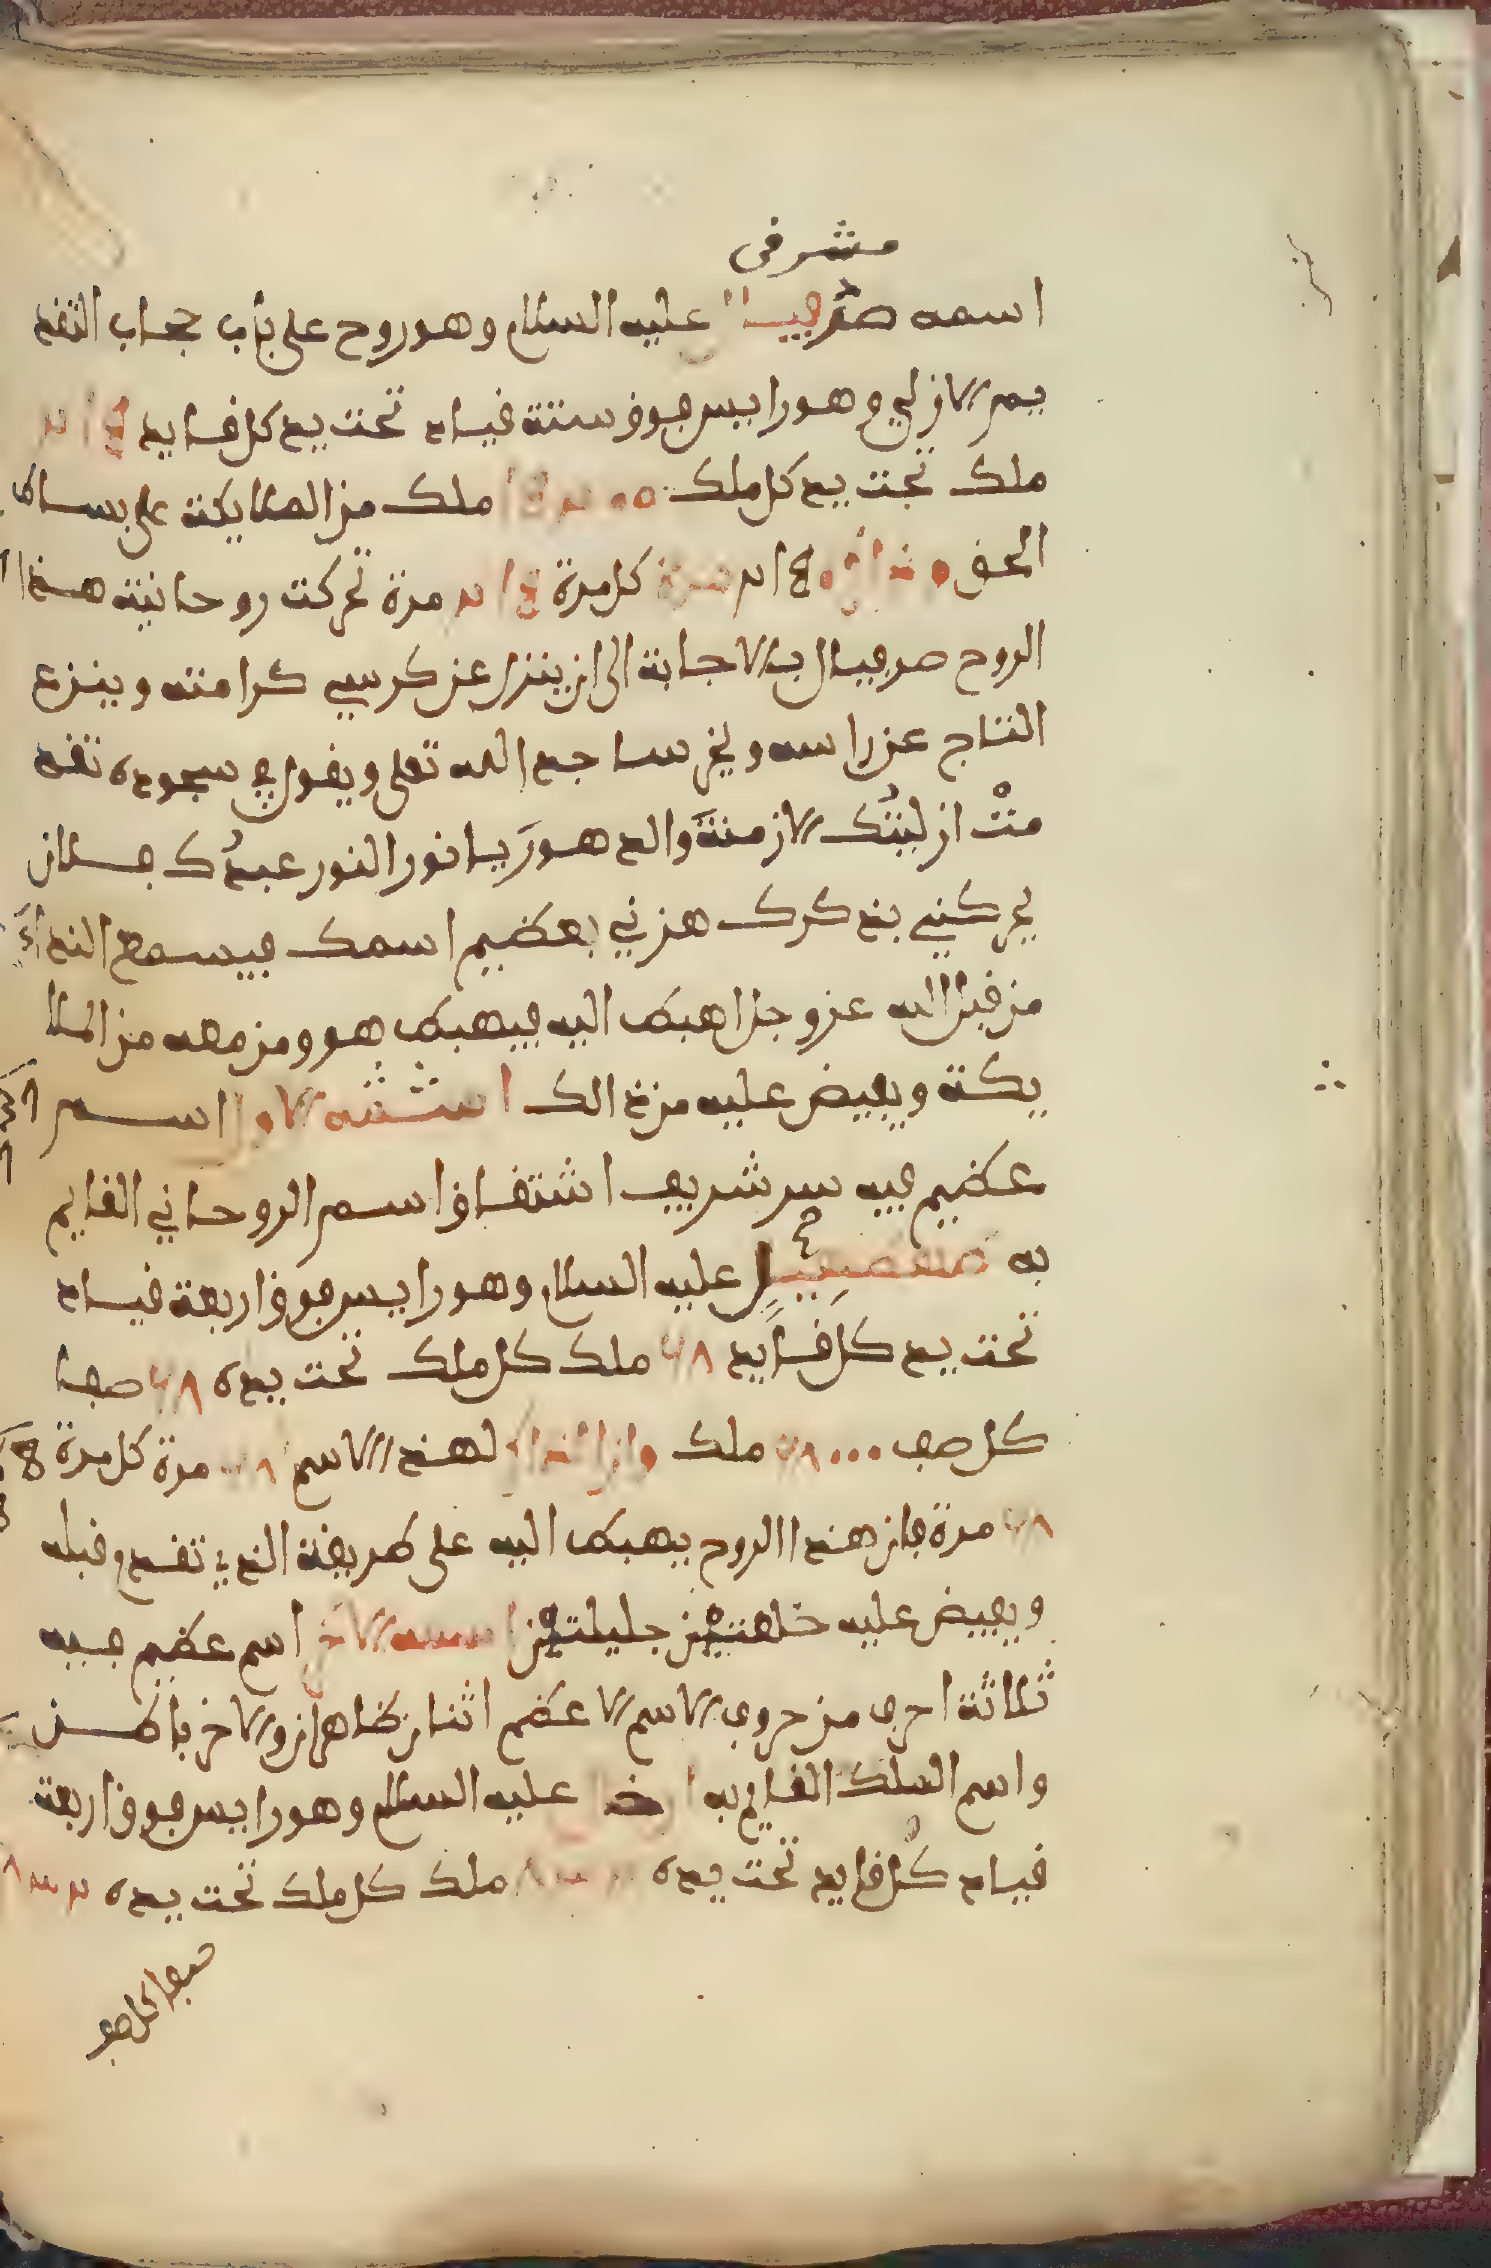 مشرفي
اسمه صرفيال عليه السلام وهو روح على باب حجاب التقد
يس الازلي وهو راييس فوق ستة قياد تحت يد كل قايد
ملك تحت يد كل ملك ملك من الملايكة على بساط
الحق مرة كل مرة مرة تحركت روحانية هذا
الروح صرفيال بالاجابة الى ان ينزل عن كرسي كرامته وينزع
التاج عن راسه ويخر ساجد الله تعلى ويقول في سجوده تقد
مت ازليتك الازمنة والدهور يا نور النور عبدك فلان
يحركني بذكرك هزني بعظيم اسمك فيسمع النداء
من قبل الله عز وجل اهبط اليه فيهبط هو ومن معه من الملا
يكة ويفيض عليه من ذالك اسم
عظيم فيه سر شريف اشتقاق اسم الروحاني القايم
به عليه السلام وهو راييس فوق اربعة قياد
تحت يد كل قايد ملك كل ملك تحت يده صفا
كل صف ملك لهذا الاسم مرة كل مرة
مرة فان هذا الروح يهبط اليه على طريقة الذي تقدم قبله
ويفيض عليه خلعتين جليلتين اسم عظيم فيه
ثلاثة احرف من حروف الاسم الاعظم اثنان ظاهران والاخر باطن
واسم الملك القايم به عليه السلام وهو راييس فوق اربعة
قياد كل قايد تحت يده ملك كل ملك تحت يده
صفا كل صف